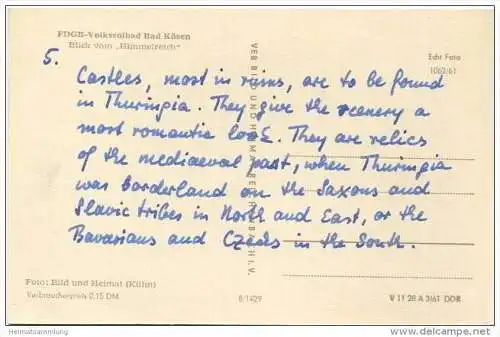 FDGB-Volkssolbad Bad Kösen
Blick vom „Himmelreich"
Echt Foto
1062/61
5.
Castles, most in ruins, are to be found
in Thuringia. They give the scenery a
most romantic look. They are relics
of the mediaeval past, when Thuringia
was borderland on the Saxons and
Slavic tribes in North and East, or the
Bavarians and Czechs in the South.
VEB BILD UND HEIMAT REICHENBACH I. V.
Foto: Bild und Heimat (Kühn)
Verbraucherpreis 0,15 DM
8/1429
V 11 28 A 3/61 DDR
Heimatsammlung
www.delcampe.net